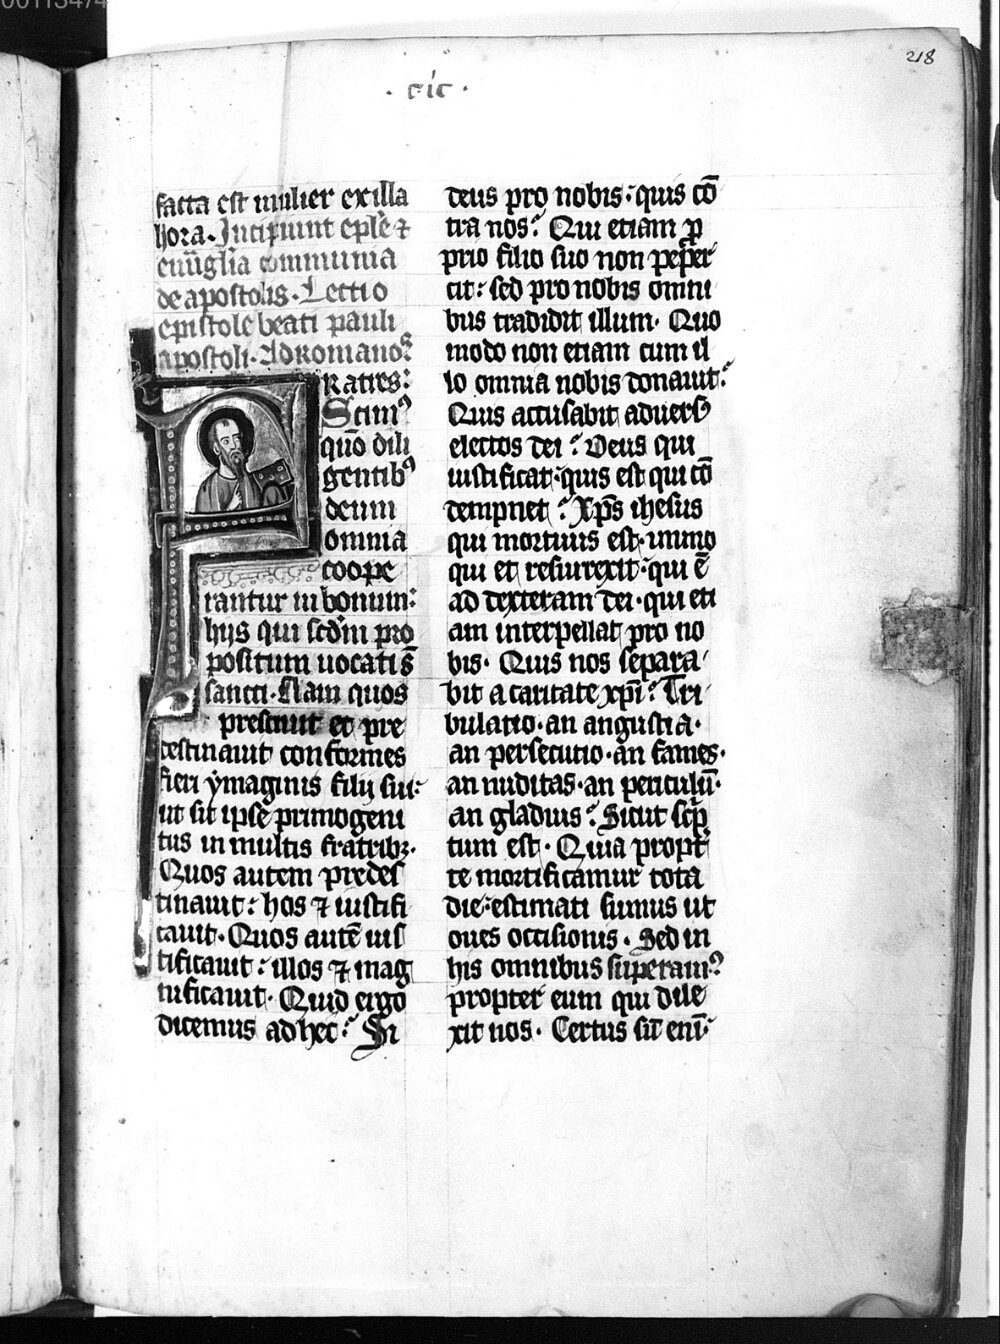 00113474
218
· cic ·
facta est mulier ex illa
hora. Incipiunt ep̄le ⁊
euu̅glia communia
de apostolis. Lectio
epistole beati pauli
apostoli. Ad romanoꝰ.
Fratres:
Scimꝰ
quo̅ dili
gentibꝰ
deum
omnia
coope
rantur in bonum:
hijs qui scd̅m pro
positum uocati s̅
sancti. Nam quos
presciuit et pre
destinauit conformes
fieri ymaginis filij sui:
ut sit ipse primogeni
tus in multis fratribꝫ.
Quos autem predes
tinauit: hos ⁊ iustifi
cauit. Quos aute̅ ius
tificauit: illos ⁊ mag
nificauit. Quid ergo
dicemus ad hec? Si
deus pro nobis: quis co̅
tra nos? Qui etiam ꝓ
prio filio suo non peper
cit: sed pro nobis omni
bus tradidit illum. Quo
modo non etiam cum il
lo omnia nobis donauit?
Quis accusabit aduersꝰ
electos dei? Deus qui
iustificat: quis est qui co̅
dempnet? Xp̅s ihesus
qui mortuus est. immo
qui et resurrexit: qui e̅
ad dexteram dei. qui eti
am interpellat pro no
bis. Quis nos separa
bit a caritate xp̅i? Tri
bulatio. an angustia.
an persecutio. an fames.
an nuditas. an periculu̅.
an gladius? Sicut scͥp
tum est. Quia propt̕
te mortificamur tota
die: estimati sumus ut
oues occisionis. Sed in
his omnibus superamꝰ
propter eum qui dile
xit nos. Certus su̅ eni̅